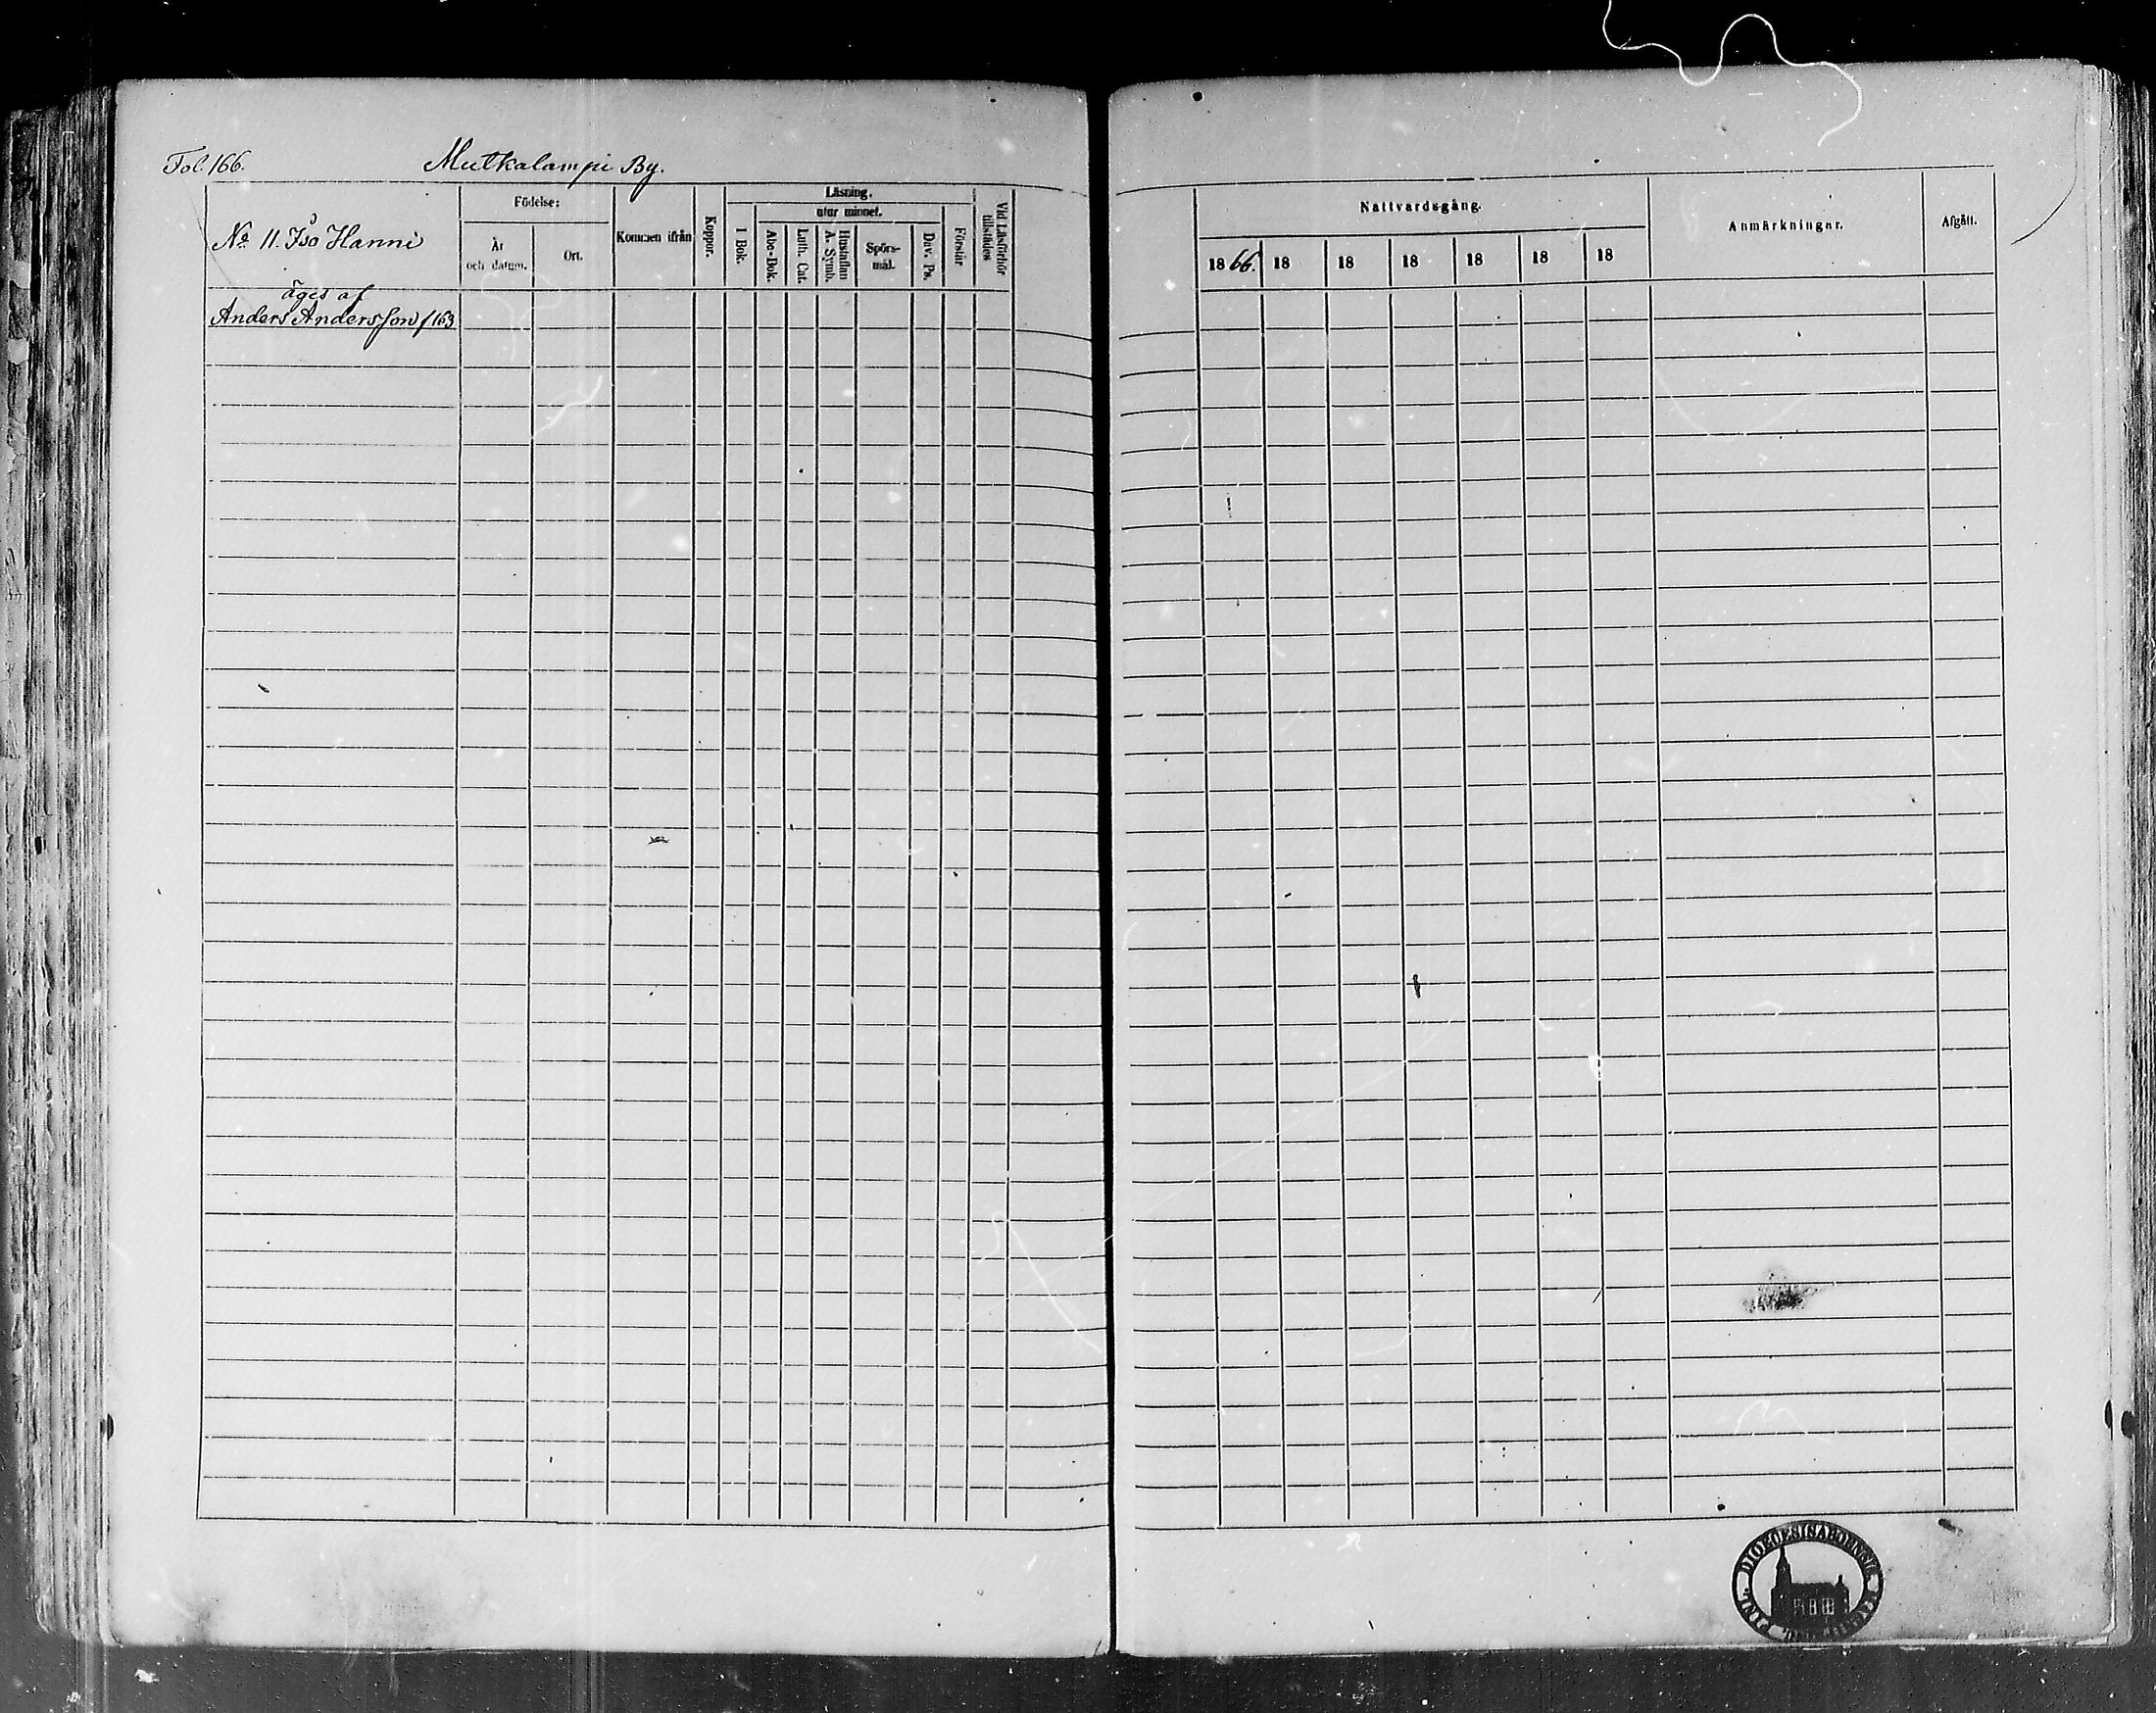 Fol. 166.
Mutkalampi By.
No 11. Iso Hanni
Födelse:
År
och datum.
Ort.
Kommen ifrån
Koppor.
Läsning.
utur minnet.
I Bok.
Abc-Bok.
Luth. Cat.
Hustaflan
A. Symb.
Spörs-
mål.
Dav. Ps.
Förstår
Vid Läsförhör
tillstädes
äges af
Anders Andersson f 163
Nattvardsgång.
1866. 18 18 18 18 18 18
Anmärkningar.
Afgått.
DIOECESIS ABOENSIS